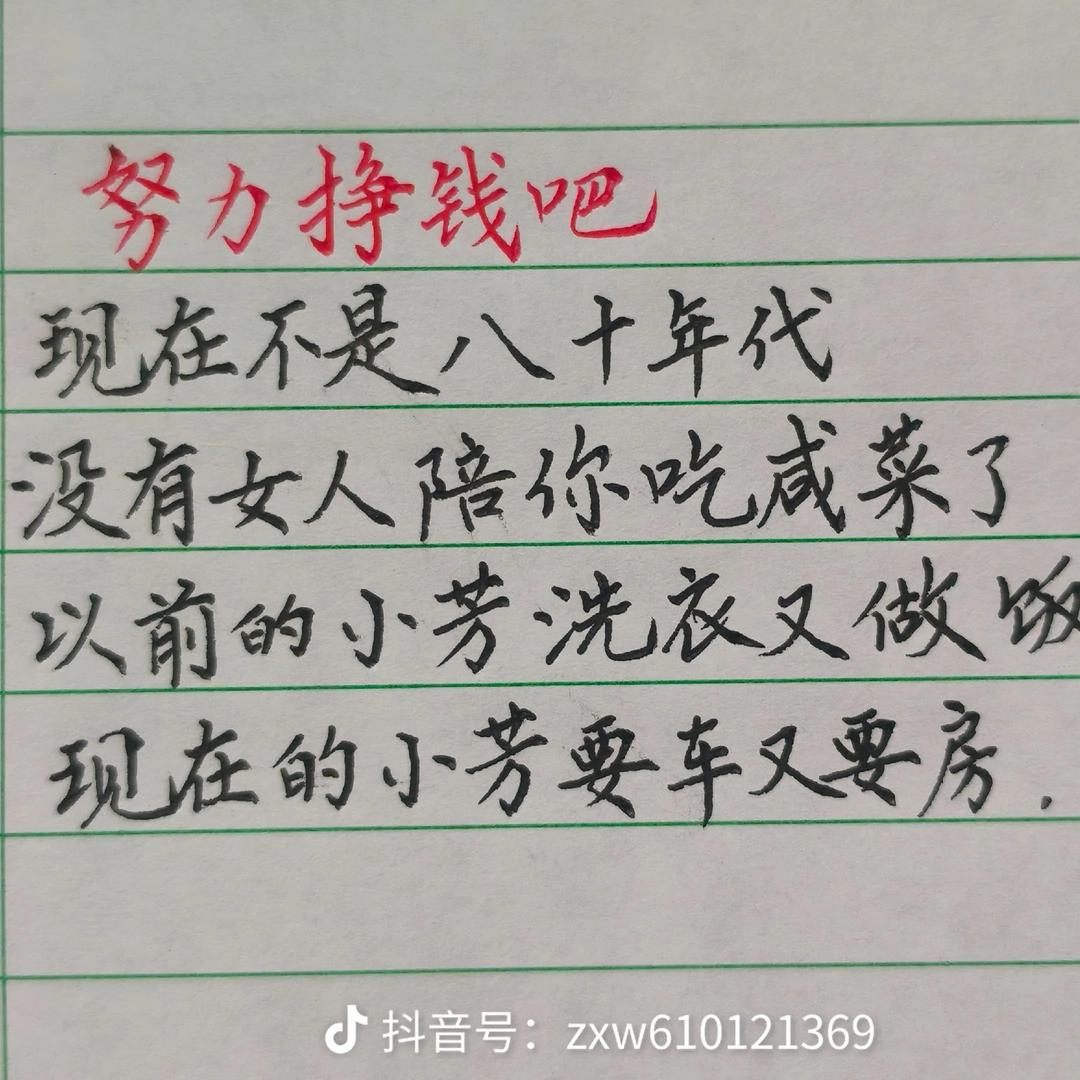 努力挣钱吧
现在不是八十年代
没有女人陪你吃咸菜了
以前的小芳洗衣又做饭
现在的小芳要车又要房.
抖音号：zxw610121369